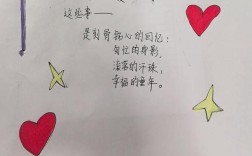 这些事——
是刻骨铭心的回忆：
匆忙的身影，
滚落的汗珠，
幸福的童年。